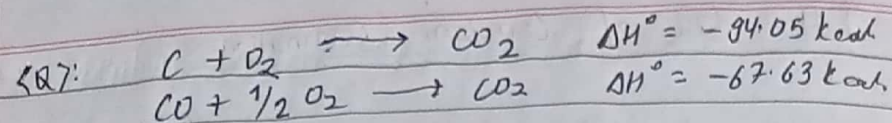 <Q>: C + O2 → CO2 ΔH° = -94.05 kcal
CO + 1/2 O2 → CO2 ΔH° = -67.63 kcal